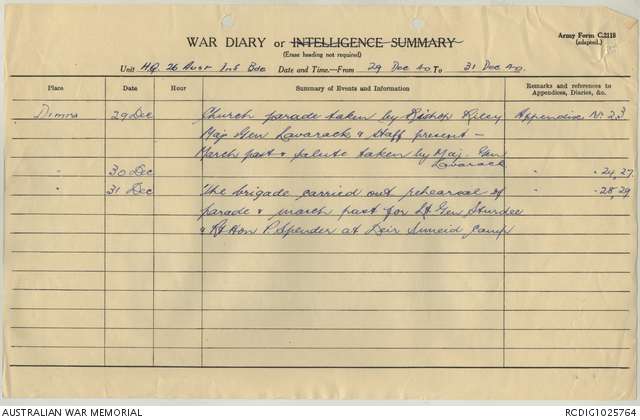 Army Form C.2118
(adapted.)
WAR DIARY or INTELLIGENCE SUMMARY
(Erase heading not required)
Unit H.Q. 26 Aust Inf Bde Date and Time.—From 29 Dec 40 To 31 Dec 40.
Place Date Hour Summary of Events and Information Remarks and references to Appendices, Diaries, &c.
Dimra 29 Dec Church parade taken by Bishop Riley Appendice No 23
Maj Gen Lavarack & Staff present —
March past & salute taken by Maj. Gen
Lavarack
" 30 Dec " 24, 27
" 31 Dec The brigade carried out rehearsal of " 28, 29
parade & march past for Lt Gen Sturdee
& Rt Hon P Spender at Deir Suneid Camp
AUSTRALIAN WAR MEMORIAL RCDIG1025764